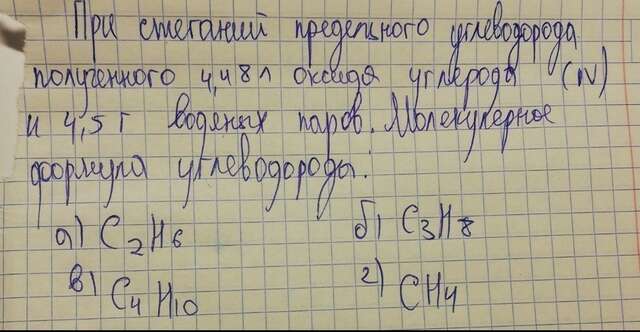 При сжегании предельного углеводорода
полученного 4,48 л оксида углерода (IV)
и 4,5 г водяных паров. Молекулерное
формула углеводороды:
а) C2H6 б) C3H8
в) C4H10 г) CH4